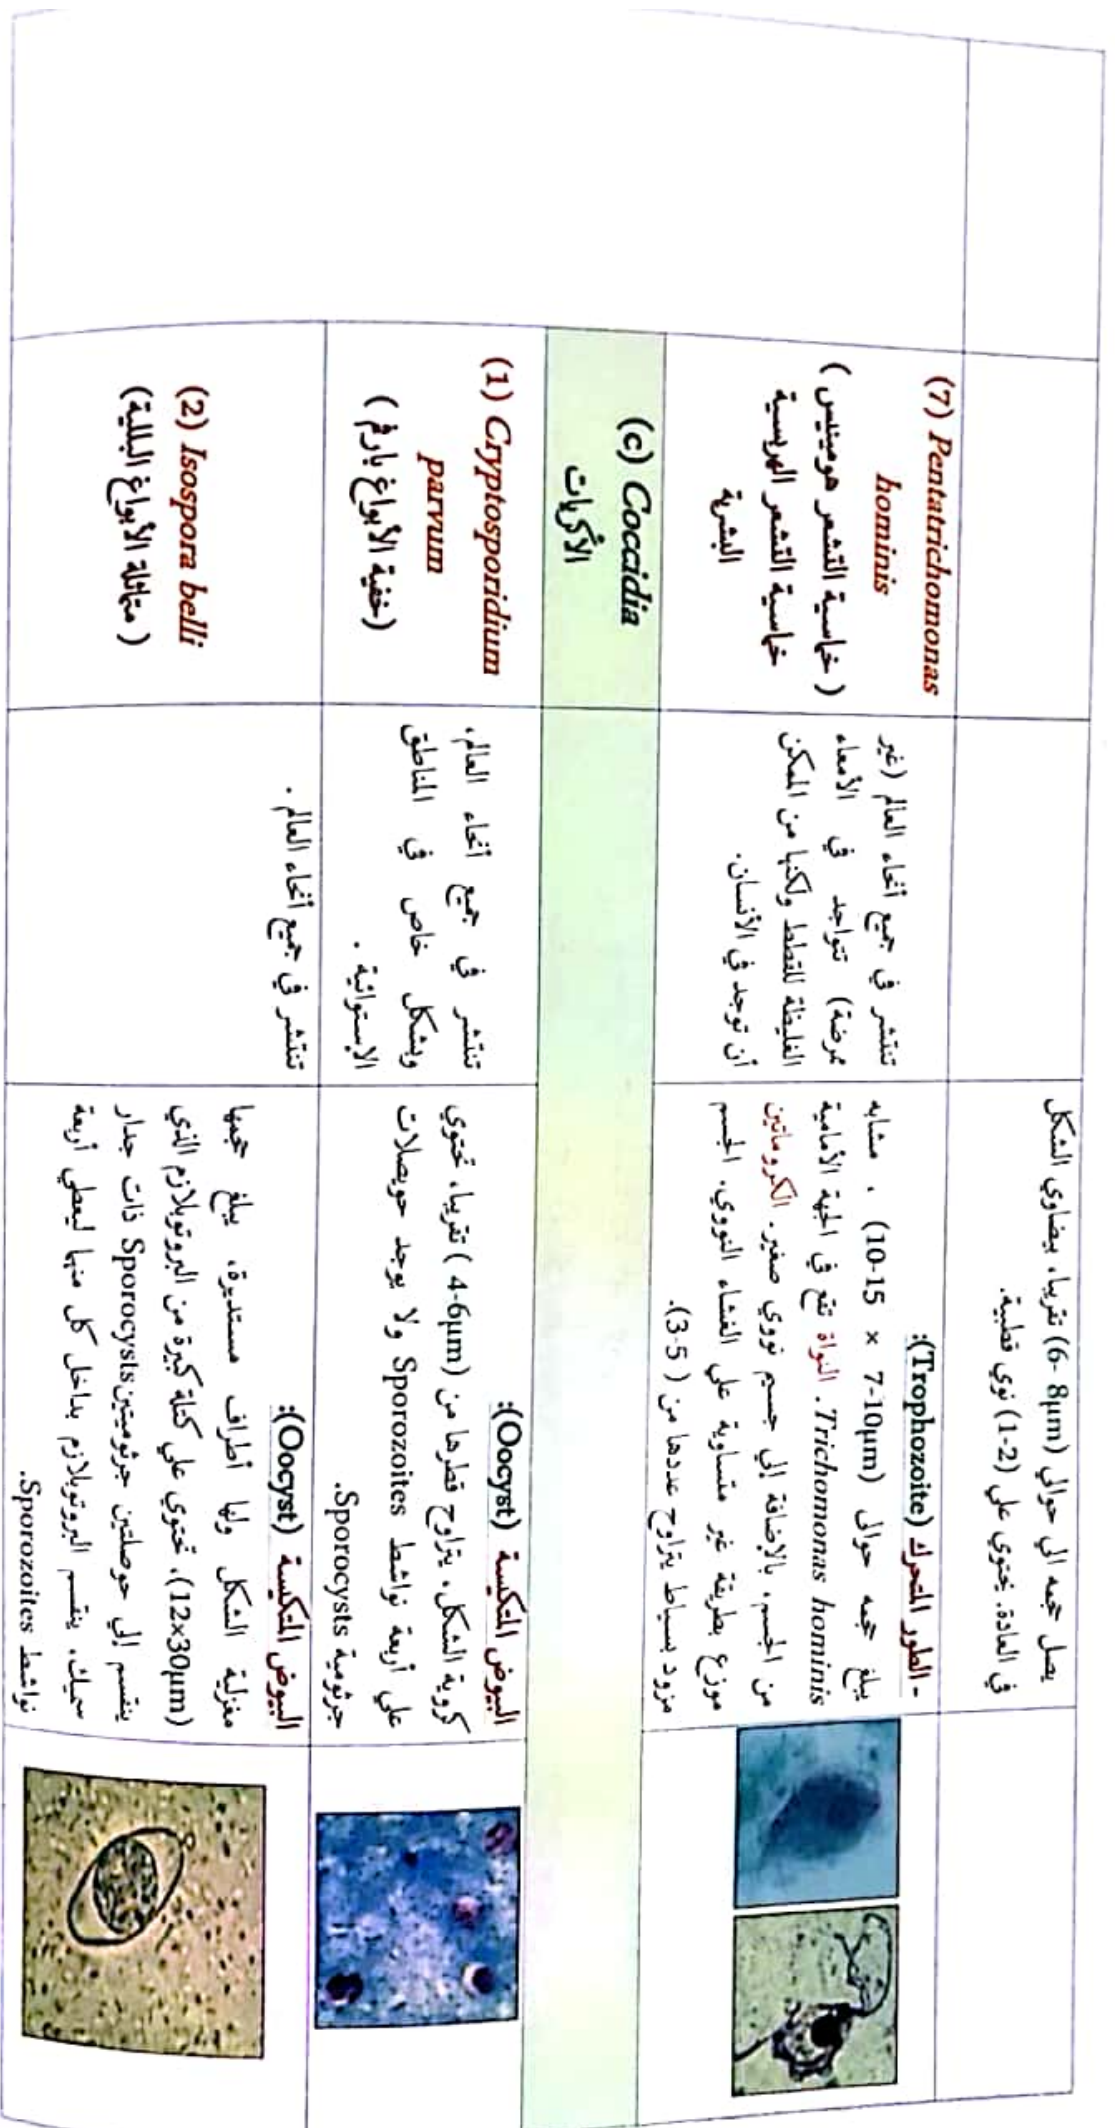 يصل حجمه الي حوالي (6- 8µm) تقريبا، بيضاوي الشكل
في العادة. يحتوي علي (1-2) نوي قطبية.
(7) Pentatrichomonas
hominis
( خماسية التشعر هومينيس )
خماسية التشعر الهريسية
البشرية
تنتشر في جميع أنحاء العالم (غير
ممرضة) تتواجد في الأمعاء
الغليظة للقطط ولكنها من الممكن
أن توجد في الأنسان.
- الطور المتحرك (Trophozoite):
يبلغ حجمه حوالى (10-15 × 7-10µm) ، مشابه
Trichomonas hominis. النواة تقع في الجهة الأمامية
من الجسم، بالإضافة إلي جسيم نووي صغير. الكروماتين
موزع بطريقة غير متساوية علي الغشاء النووي. الجسم
مزود بسياط يتراوح عددها من ( 3-5).
(c) Coccidia
الأكريات
(1) Cryptosporidium
parvum
(خفية الأبواغ بارفم )
تنتشر في جميع أنحاء العالم،
وبشكل خاص في المناطق
الإستوائية .
البيوض المتكيسة (Oocyst):
كروية الشكل، يتراوح قطرها من (4-6µm ) تقريبا، تحتوي
علي أربعة نواشط Sporozoites ولا يوجد حويصلات
جرثومية Sporocysts.
(2) Isospora belli
( متماثلة الأبواغ البللية)
تنتشر في جميع أنحاء العالم .
البيوض المتكيسة (Oocyst):
مغزلية الشكل ولها أطراف مستديرة، يبلغ حجمها
(12x30µm)، تحتوي علي كتلة كبيرة من البروتوبلازم الذي
ينقسم إلي حوصلتين جرثوميتين Sporocysts ذات جدار
سميك، ينقسم البروتوبلازم بداخل كل منها ليعطي أربعة
نواشط Sporozoites.